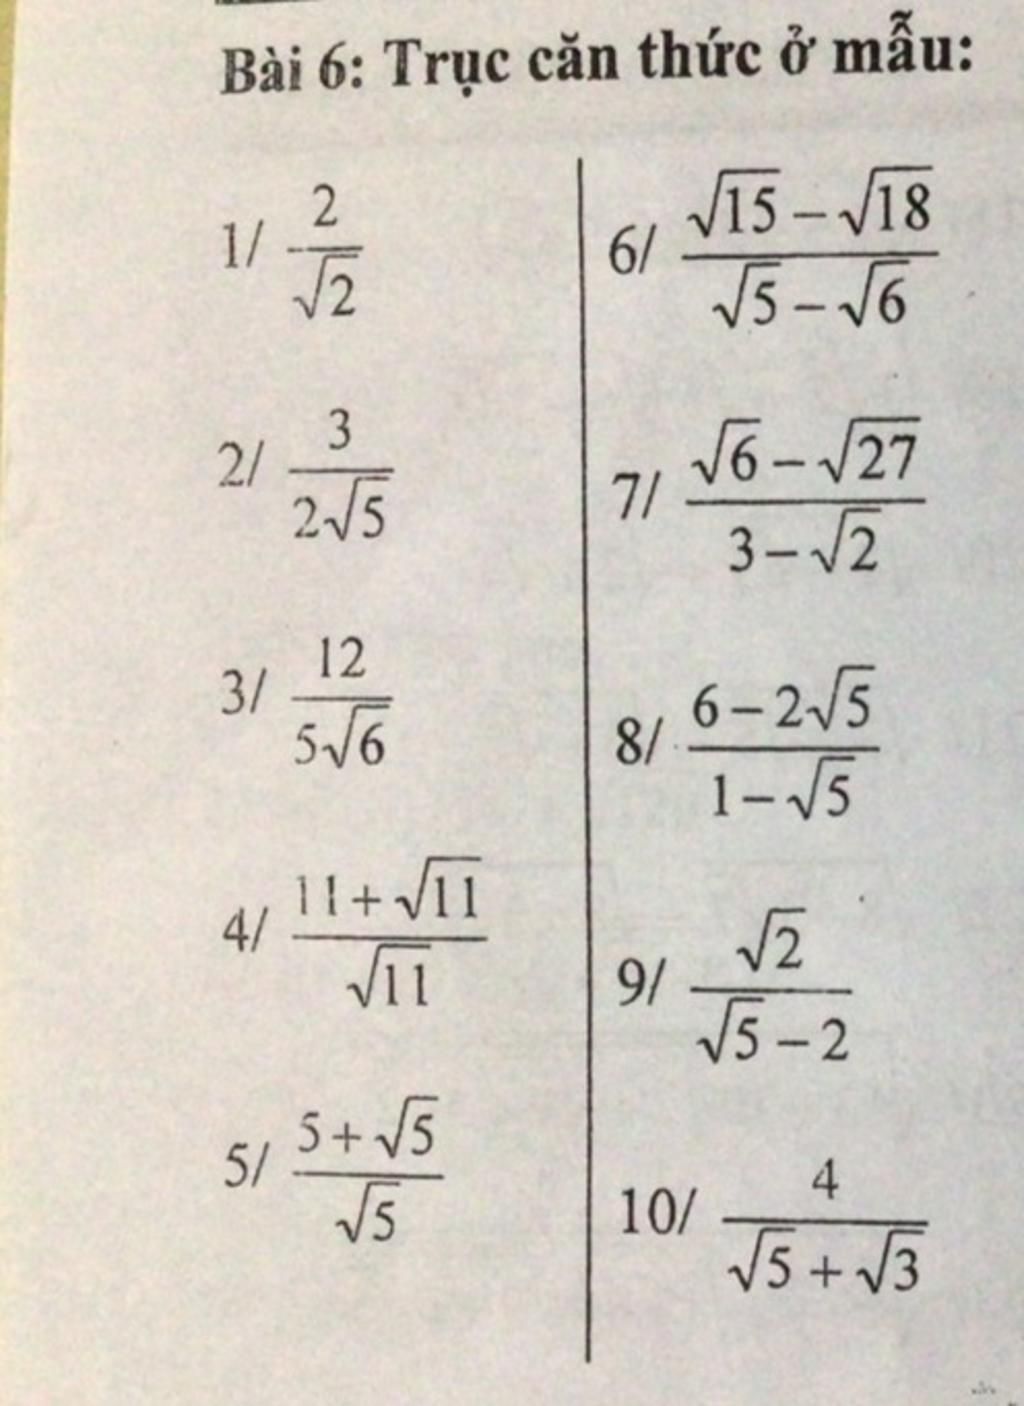 Bài 6: Trục căn thức ở mẫu:
1/ 2/√2
2/ 3/(2√5)
3/ 12/(5√6)
4/ (11+√11)/√11
5/ (5+√5)/√5
6/ (√15−√18)/(√5−√6)
7/ (√6−√27)/(3−√2)
8/ (6−2√5)/(1−√5)
9/ √2/(√5−2)
10/ 4/(√5+√3)